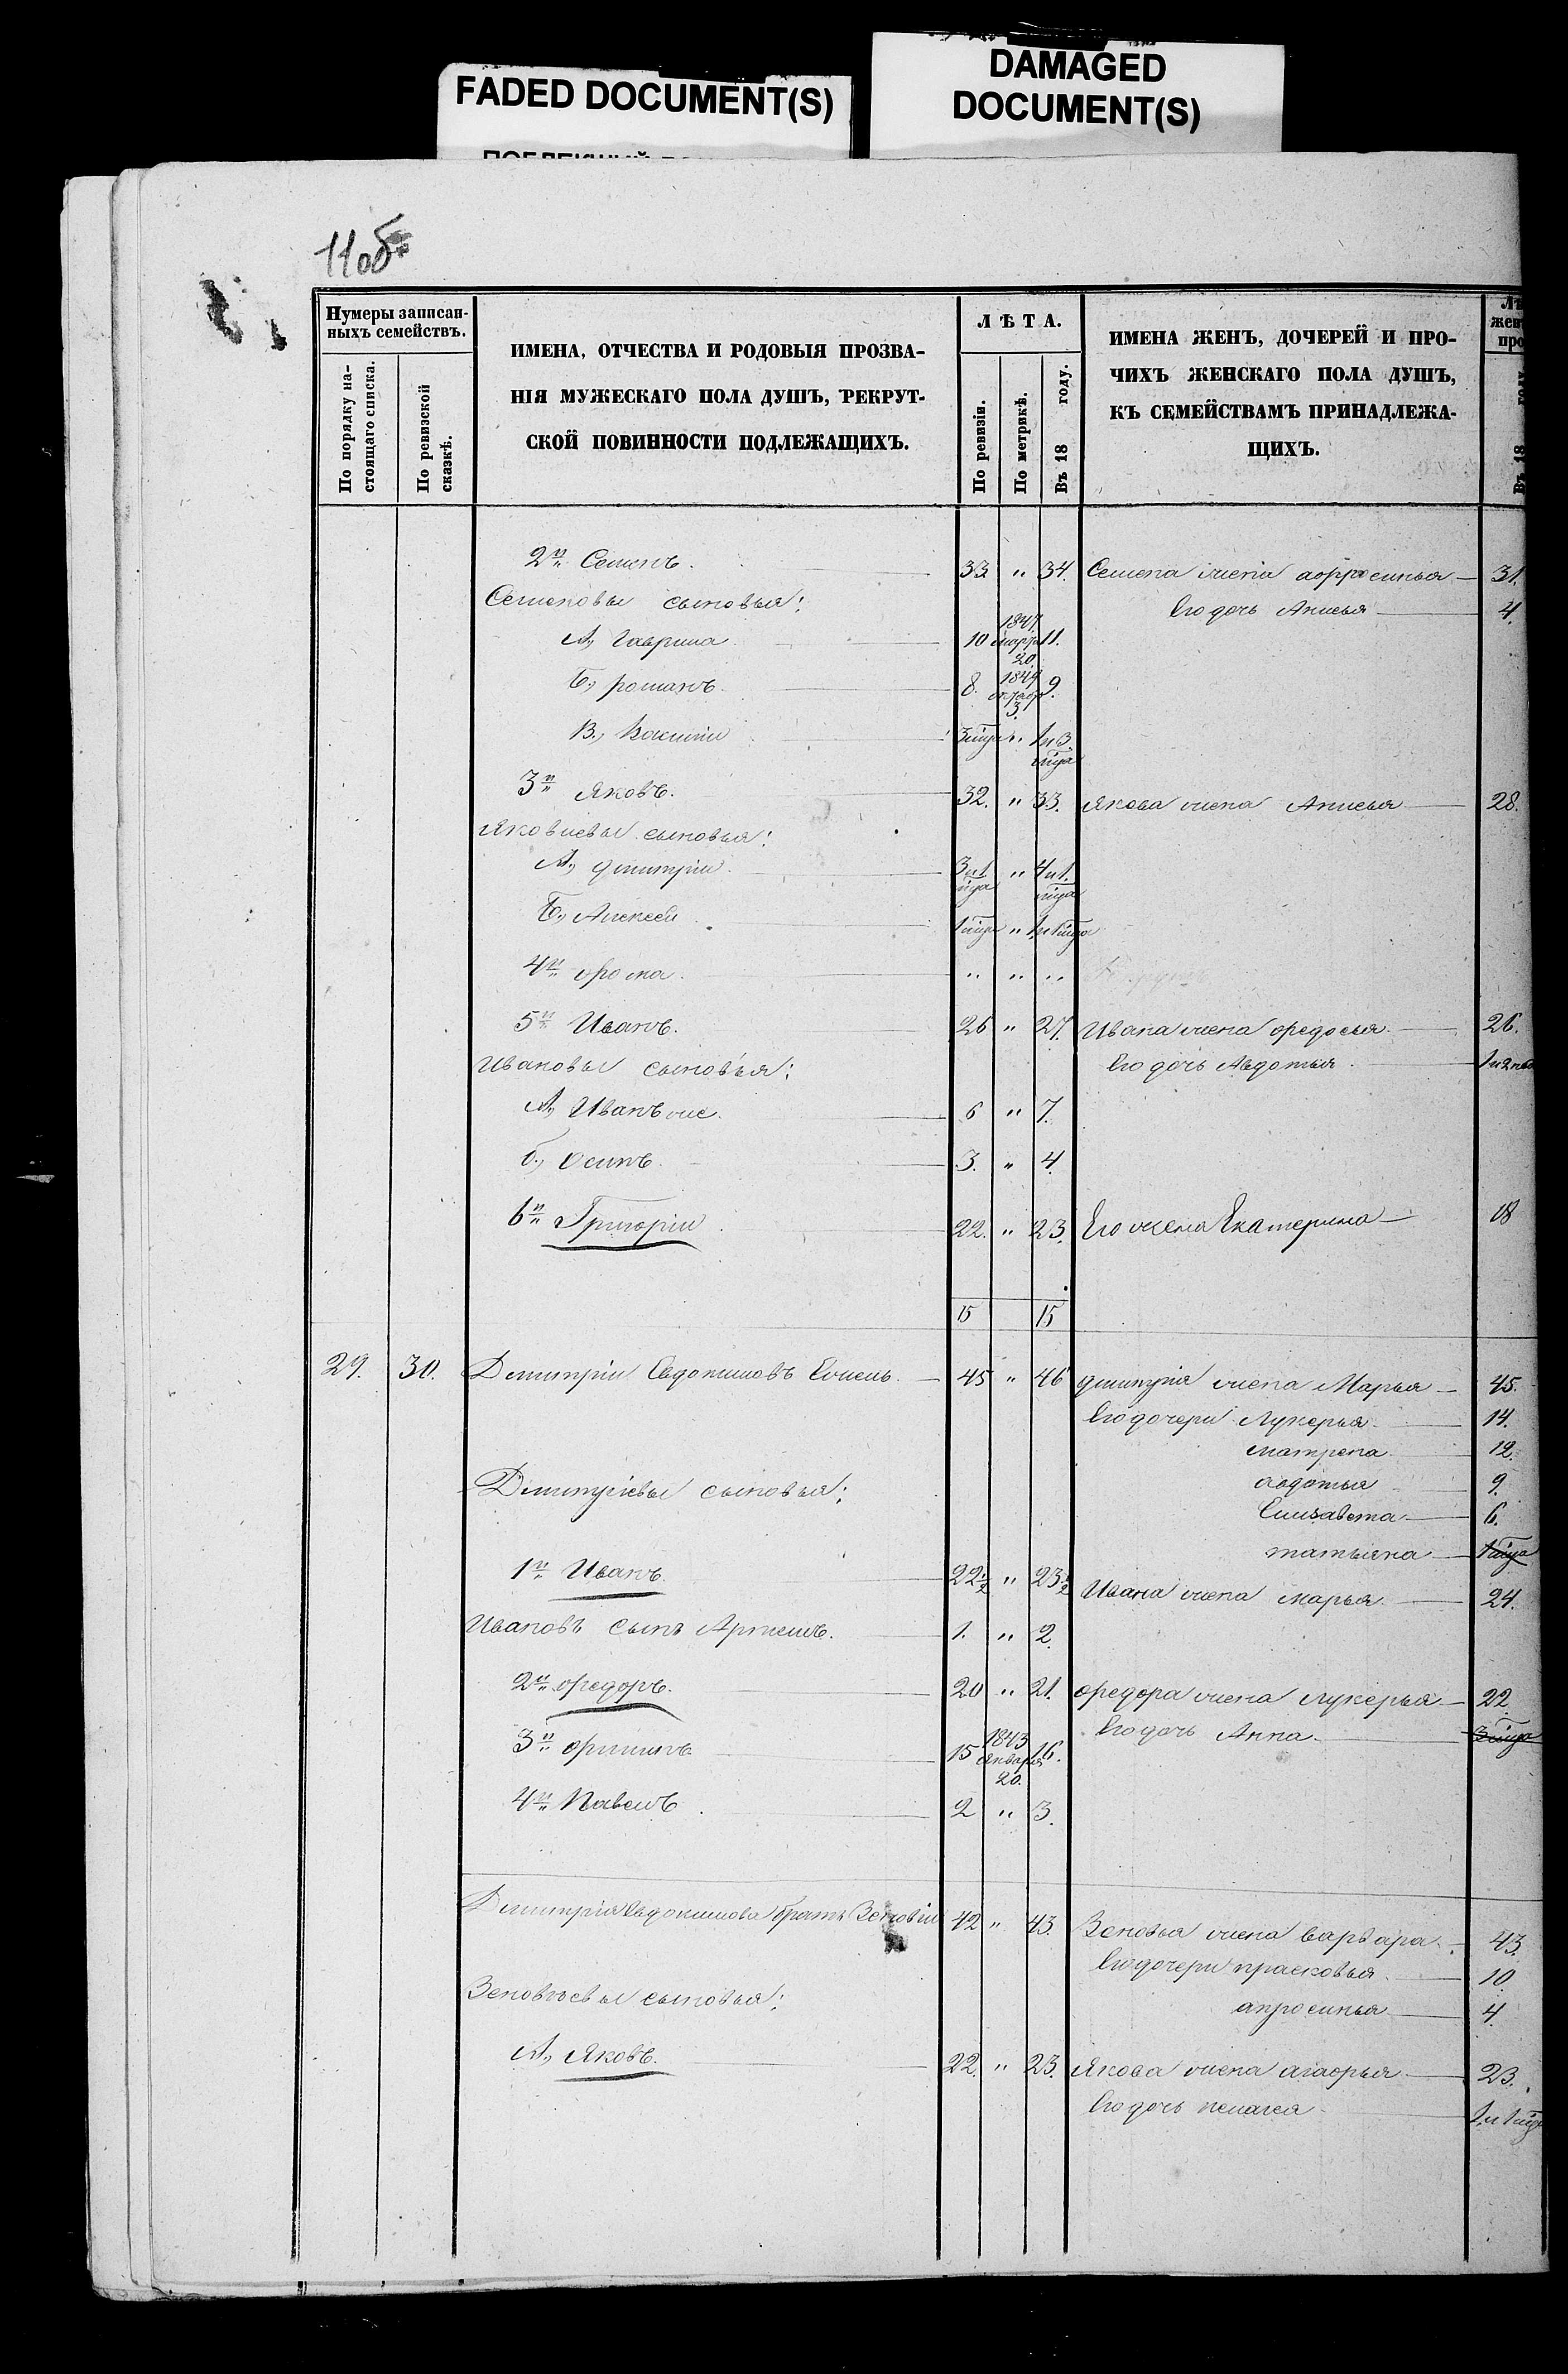 FADED DOCUMENT(S)
DAMAGED
DOCUMENT(S)
11об
Нумеры записан-
ныхъ семействъ.
По порядку на-
стоящаго списка.
По ревизской
сказкѣ.
ИМЕНА, ОТЧЕСТВА И РОДОВЫЯ ПРОЗВА-
НІЯ МУЖЕСКАГО ПОЛА ДУШЪ, РЕКРУТ-
СКОЙ ПОВИННОСТИ ПОДЛЕЖАЩИХЪ.
ЛѢТА.
По ревизіи.
По метрикѣ.
Въ 18 году.
ИМЕНА ЖЕНЪ, ДОЧЕРЕЙ И ПРО-
ЧИХЪ ЖЕНСКАГО ПОЛА ДУШЪ,
КЪ СЕМЕЙСТВАМЪ ПРИНАДЛЕЖА-
ЩИХЪ.
Въ 18 году
2й Семенъ. 33 " 34. Семена жена афросинья 31.
Семеновы сыновья: Его дочь Анисья 4.
А, Гаврила 10 1847 марта 20. 11.
Б, романъ. 8. 1849 3. 9.
В,
3й Яковъ. 32. " 33. Якова жена Анисья 28.
Яковлевы сыновья:
А, дмитріи 3 и 1/2 года " 4 и 1/2 года
Б, Алексеи
4й фома " " "
5й Иванъ. 26 " 27. Ивана жена федосья 26.
Ивановы сыновья: Его дочь Авдотья
А, Иванъ же. 6 " 7.
б, Осипъ. 3. " 4.
6й Григоріи 22. " 23. Его жена Екатерина 18
15 15
29. 30. Дмитріи Евдокимовъ 45 " 46 дмитрія жена Марья 45.
Его дочери Лукерья 14.
матрена 12.
Дмитріевы сыновья: авдотья 9.
Елизавета 6.
татьяна
1й Иванъ 22 1/2 " 23 1/2 Ивана жена марья 24.
Ивановъ сынъ Артемъ. 1. " 2.
2й федоръ. 20 " 21. федора жена лукерья 22
Его дочь Анна
3й филипъ 15 1843 января 20. 16.
4й Павелъ 2 " 3.
Дмитрія Евдокимова братъ Зеновіи 42 " 43. Зеновья жена варвара 43.
Его дочери прасковья 10
Зеновьевы сыновья: апросинья 4
А, Яковъ. 22. " 23. Якова жена агафья 23.
Его дочь пелагея